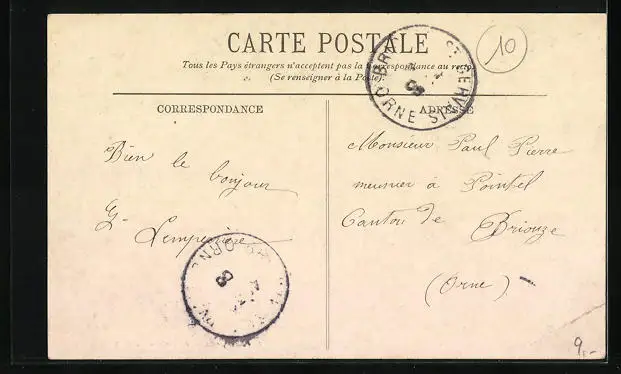 CARTE POSTALE
Tous les Pays étrangers n'acceptent pas la Correspondance au recto
(Se renseigner à la Poste).
CORRESPONDANCE
Bien le bonjour
G. Lemperière
ADRESSE
Monsieur Paul Pierre
meunier à Pointel
Canton de Briouze
(Orne)
10
ORNE
08
ORNE
08
9,-